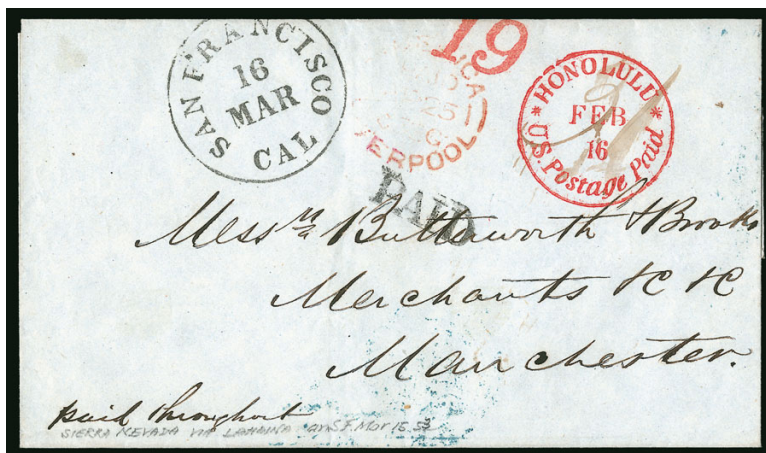 SAN FRANCISCO
16
MAR
CAL
19
ICA
25
LIVERPOOL
PAID
HONOLULU
FEB
16
U.S. Postage Paid
Messrs Butterworth & Brooks
Merchants &c &c
Manchester.
paid throughout
SIERRA NEVADA VIA LAHAINA arr S.F. Mar 15 53